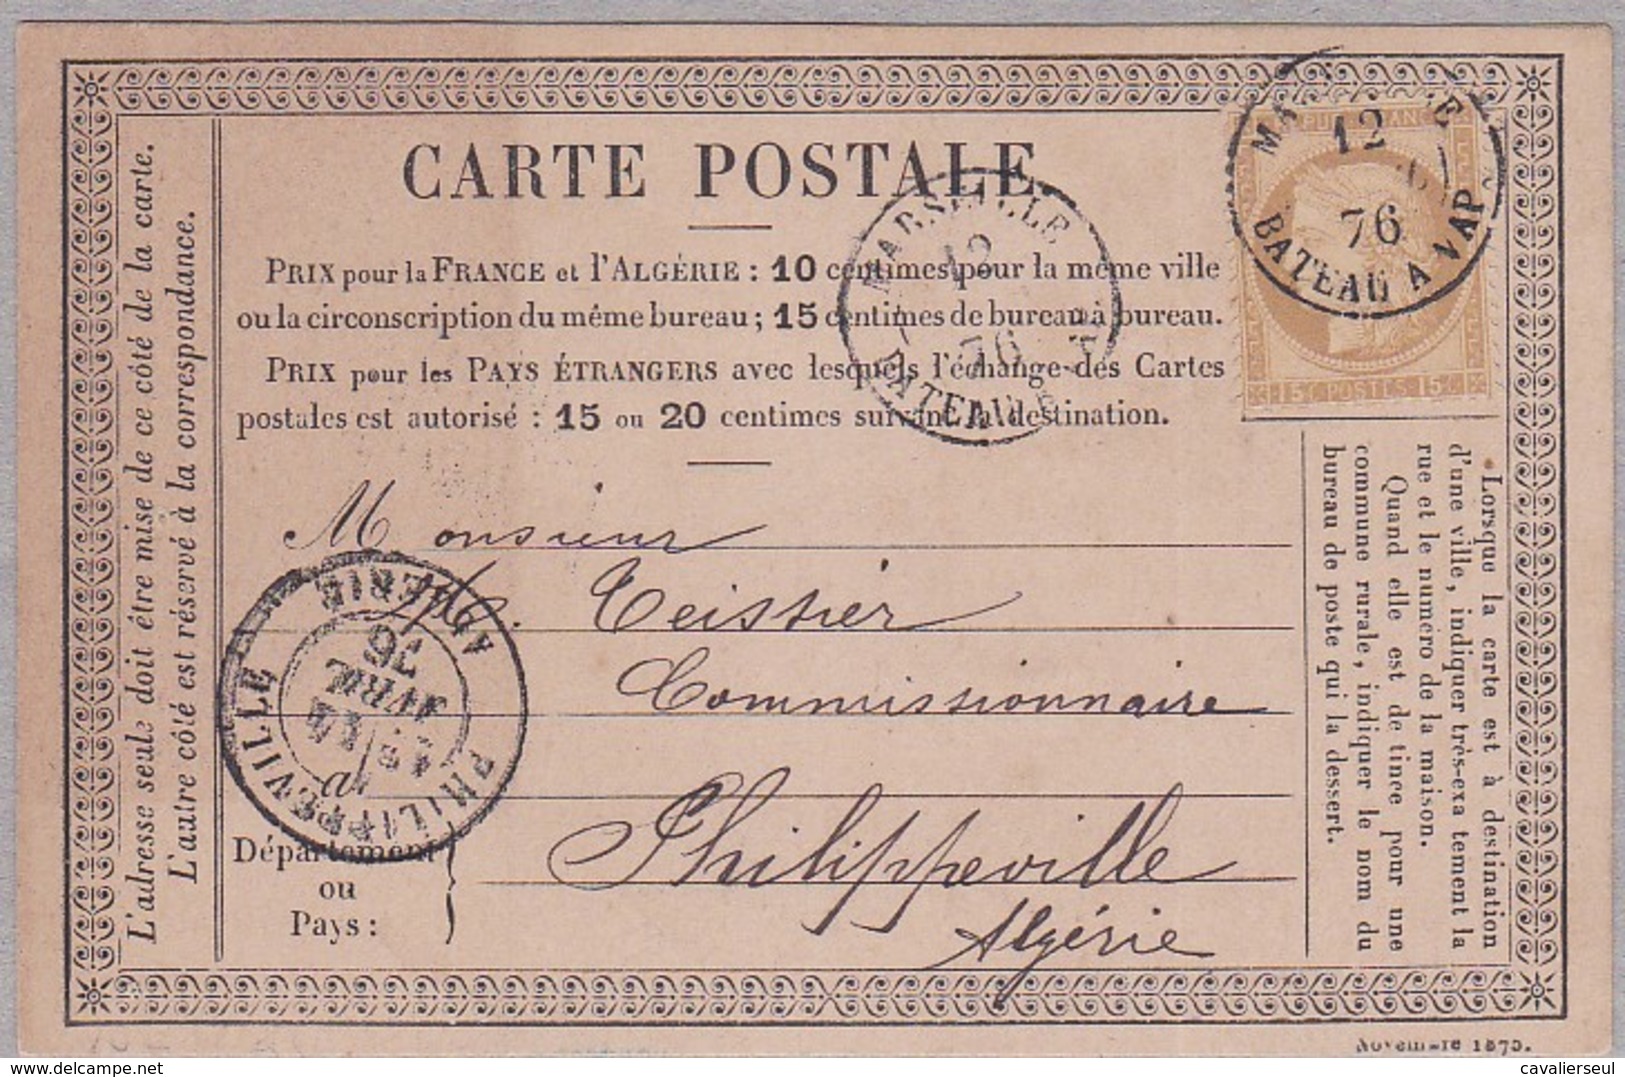 CARTE POSTALE
PRIX pour la FRANCE et l'ALGÉRIE : 10 centimes pour la même ville
ou la circonscription du même bureau ; 15 centimes de bureau à bureau.
PRIX pour les PAYS ÉTRANGERS avec lesquels l'échange des Cartes
postales est autorisé : 15 ou 20 centimes suivant la destination.
L'adresse seule doit être mise de ce côté de la carte.
L'autre côté est réservé à la correspondance.
MARSEILLE
12
76
BATEAU A
12
76
BATEAU A VAP
15c POSTES 15c
Monsieur
Teissier
Commissionnaire
a
Philippeville
Algérie
Département
ou
Pays :
PHILIPPEVILLE
ALGERIE
AVRIL
76
Lorsque la carte est à destination
d'une ville, indiquer très-exa tement la
rue et le numéro de la maison.
Quand elle est de tinée pour une
commune rurale, indiquer le nom du
bureau de poste qui la dessert.
Novembre 1875.
cavalierseul